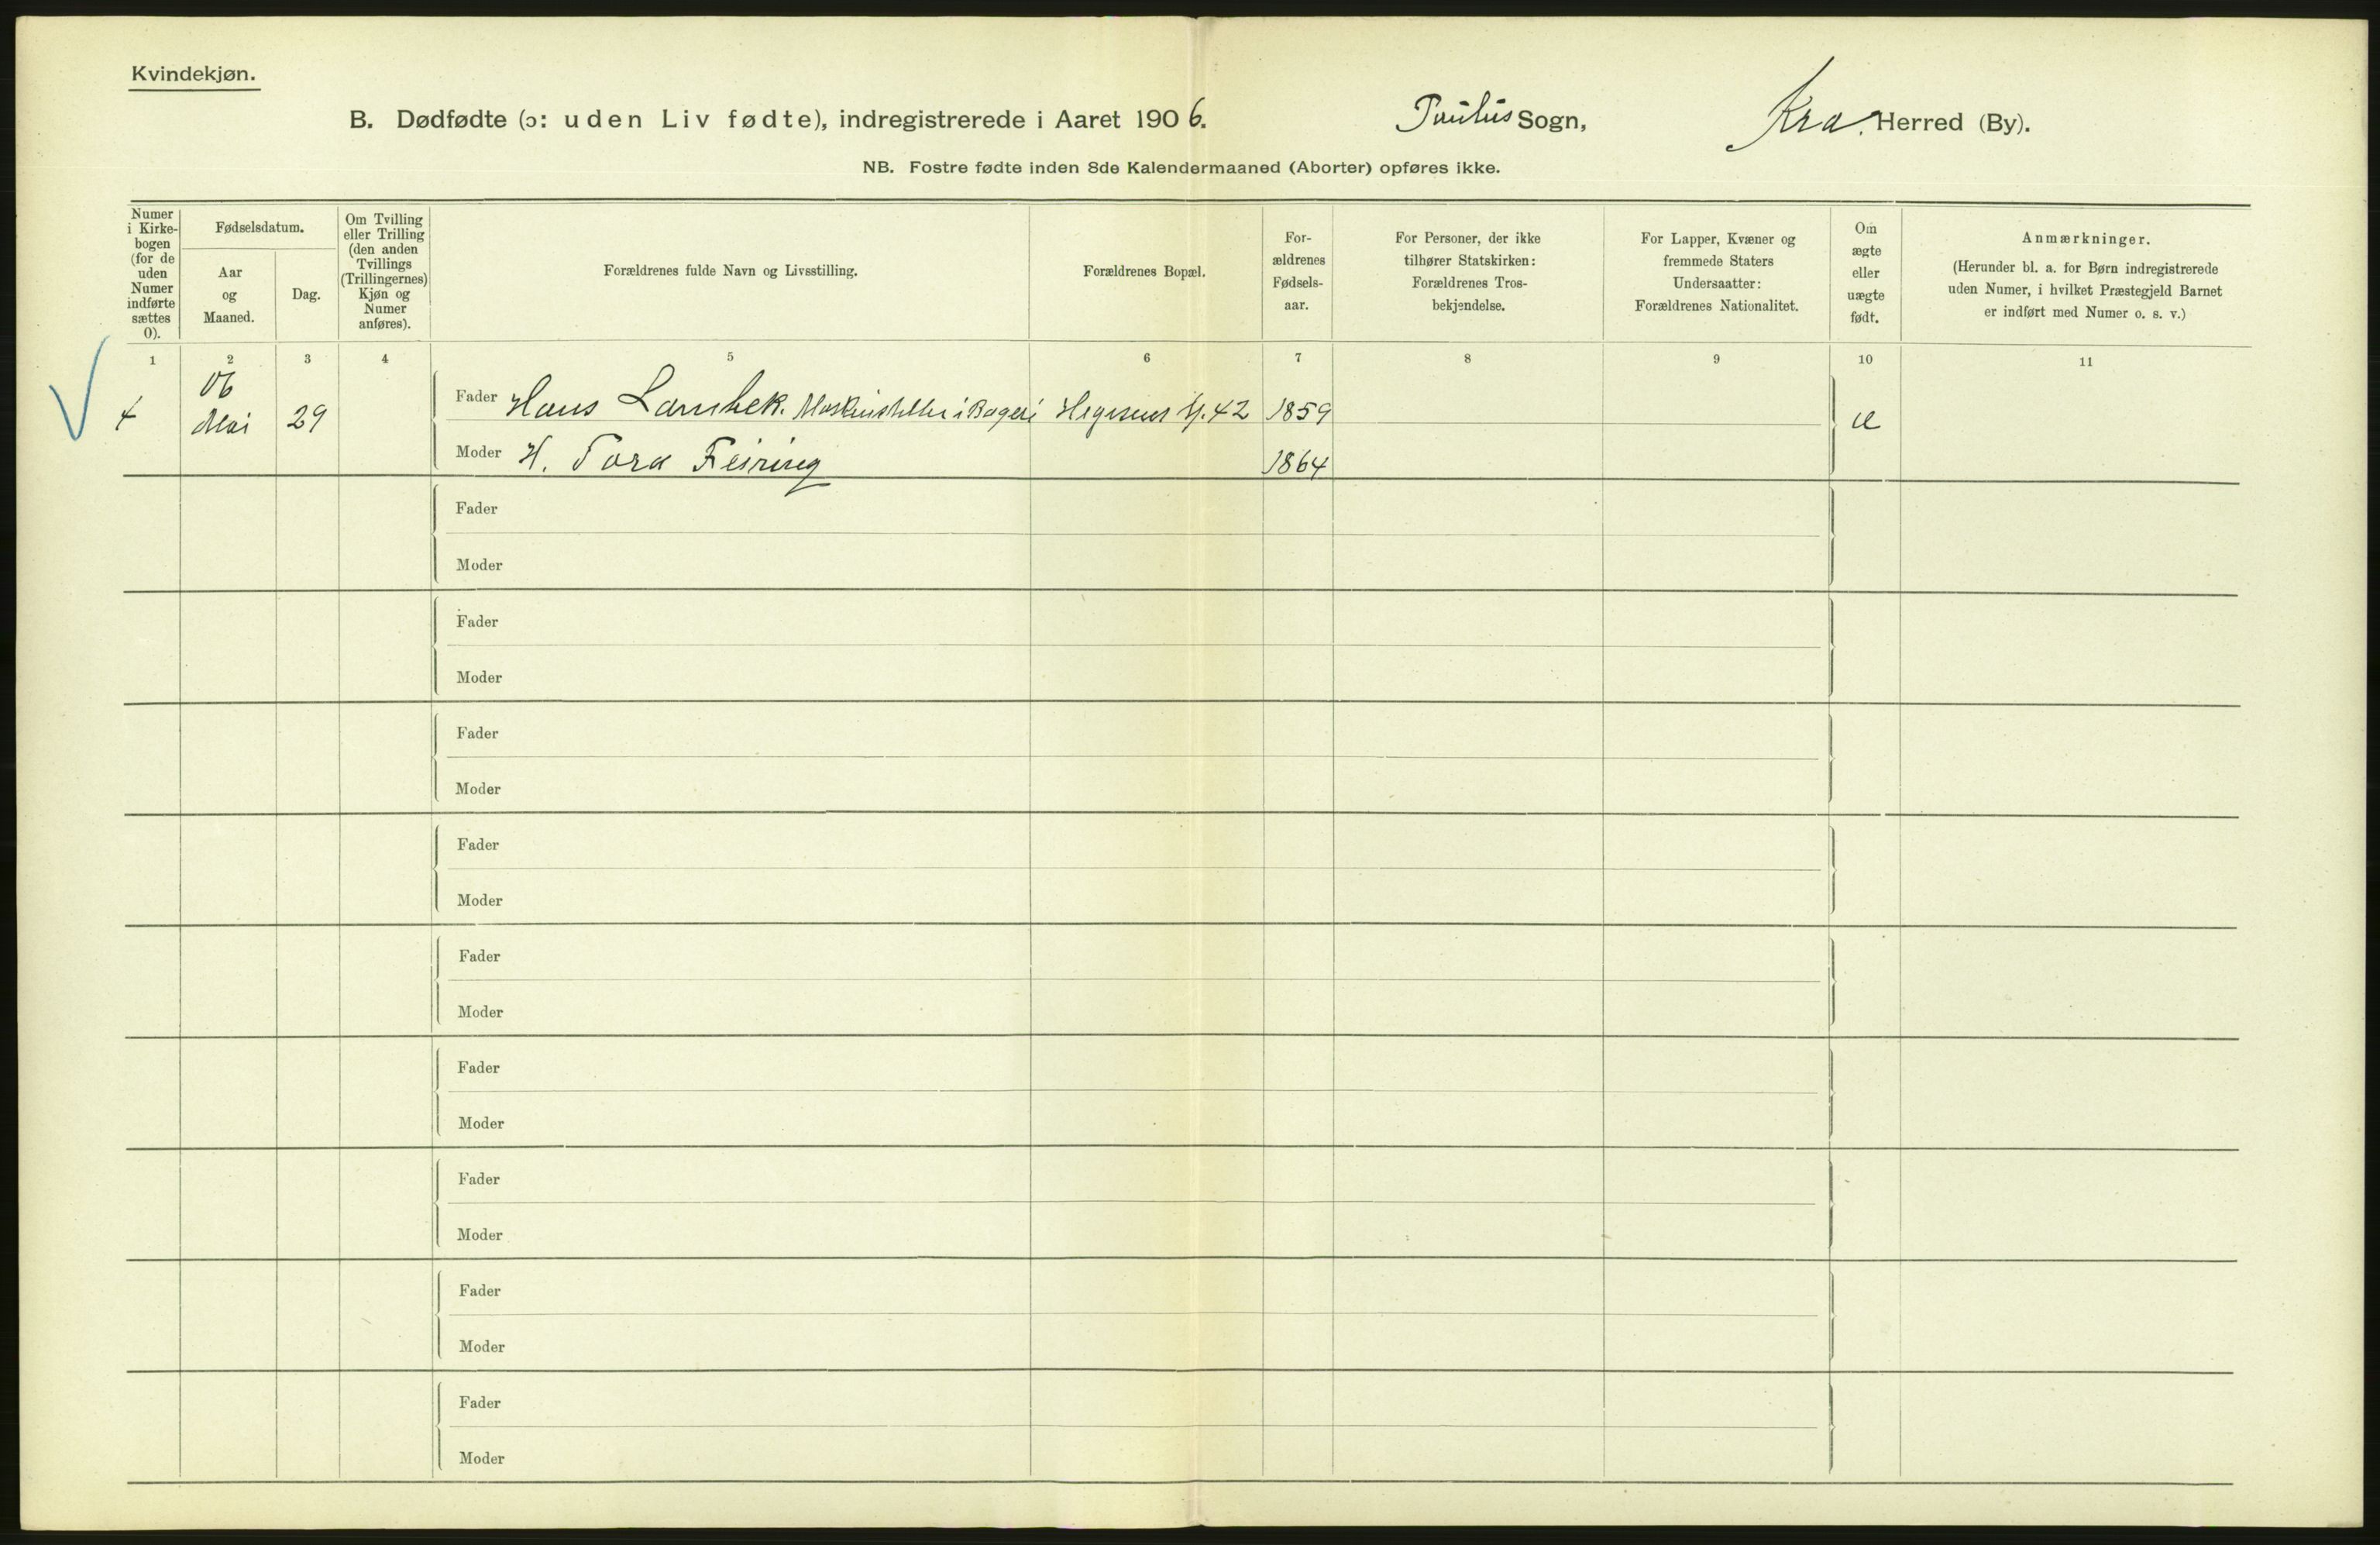 Kvindekjøn.
B. Dødfødte (ɔ: uden Liv fødte), indregistrerede i Aaret 1906. Paulus Sogn, Kra. Herred (By).
NB. Fostre fødte inden 8de Kalendermaaned (Aborter) opføres ikke.
Numer i Kirke-
bogen
(for de
uden
Numer
indførte
sættes
0).
Fødselsdatum.
Aar
og
Maaned.
Dag.
Om Tvilling
eller Trilling
(den anden
Tvillings
(Trillingernes)
Kjøn og
Numer
anføres).
Forældrenes fulde Navn og Livsstilling.
Forældrenes Bopæl.
For-
ældrenes
Fødsels-
aar.
For Personer, der ikke
tilhører Statskirken:
Forældrenes Tros-
bekjendelse.
For Lapper, Kvæner og
fremmede Staters
Undersaatter:
Forældrenes Nationalitet.
Om
ægte
eller
uægte
født.
Anmærkninger.
(Herunder bl. a. for Børn indregistrerede
uden Numer, i hvilket Præstegjeld Barnet
er indført med Numer o. s. v.)
1 2 3 4 5 6 7 8 9 10 11
06
4 Mai 29 Fader Hans Lambek. i Bageri 42 1859 Æ
Moder H. Tora Feiring 1864
Fader
Moder
Fader
Moder
Fader
Moder
Fader
Moder
Fader
Moder
Fader
Moder
Fader
Moder
Fader
Moder
Fader
Moder